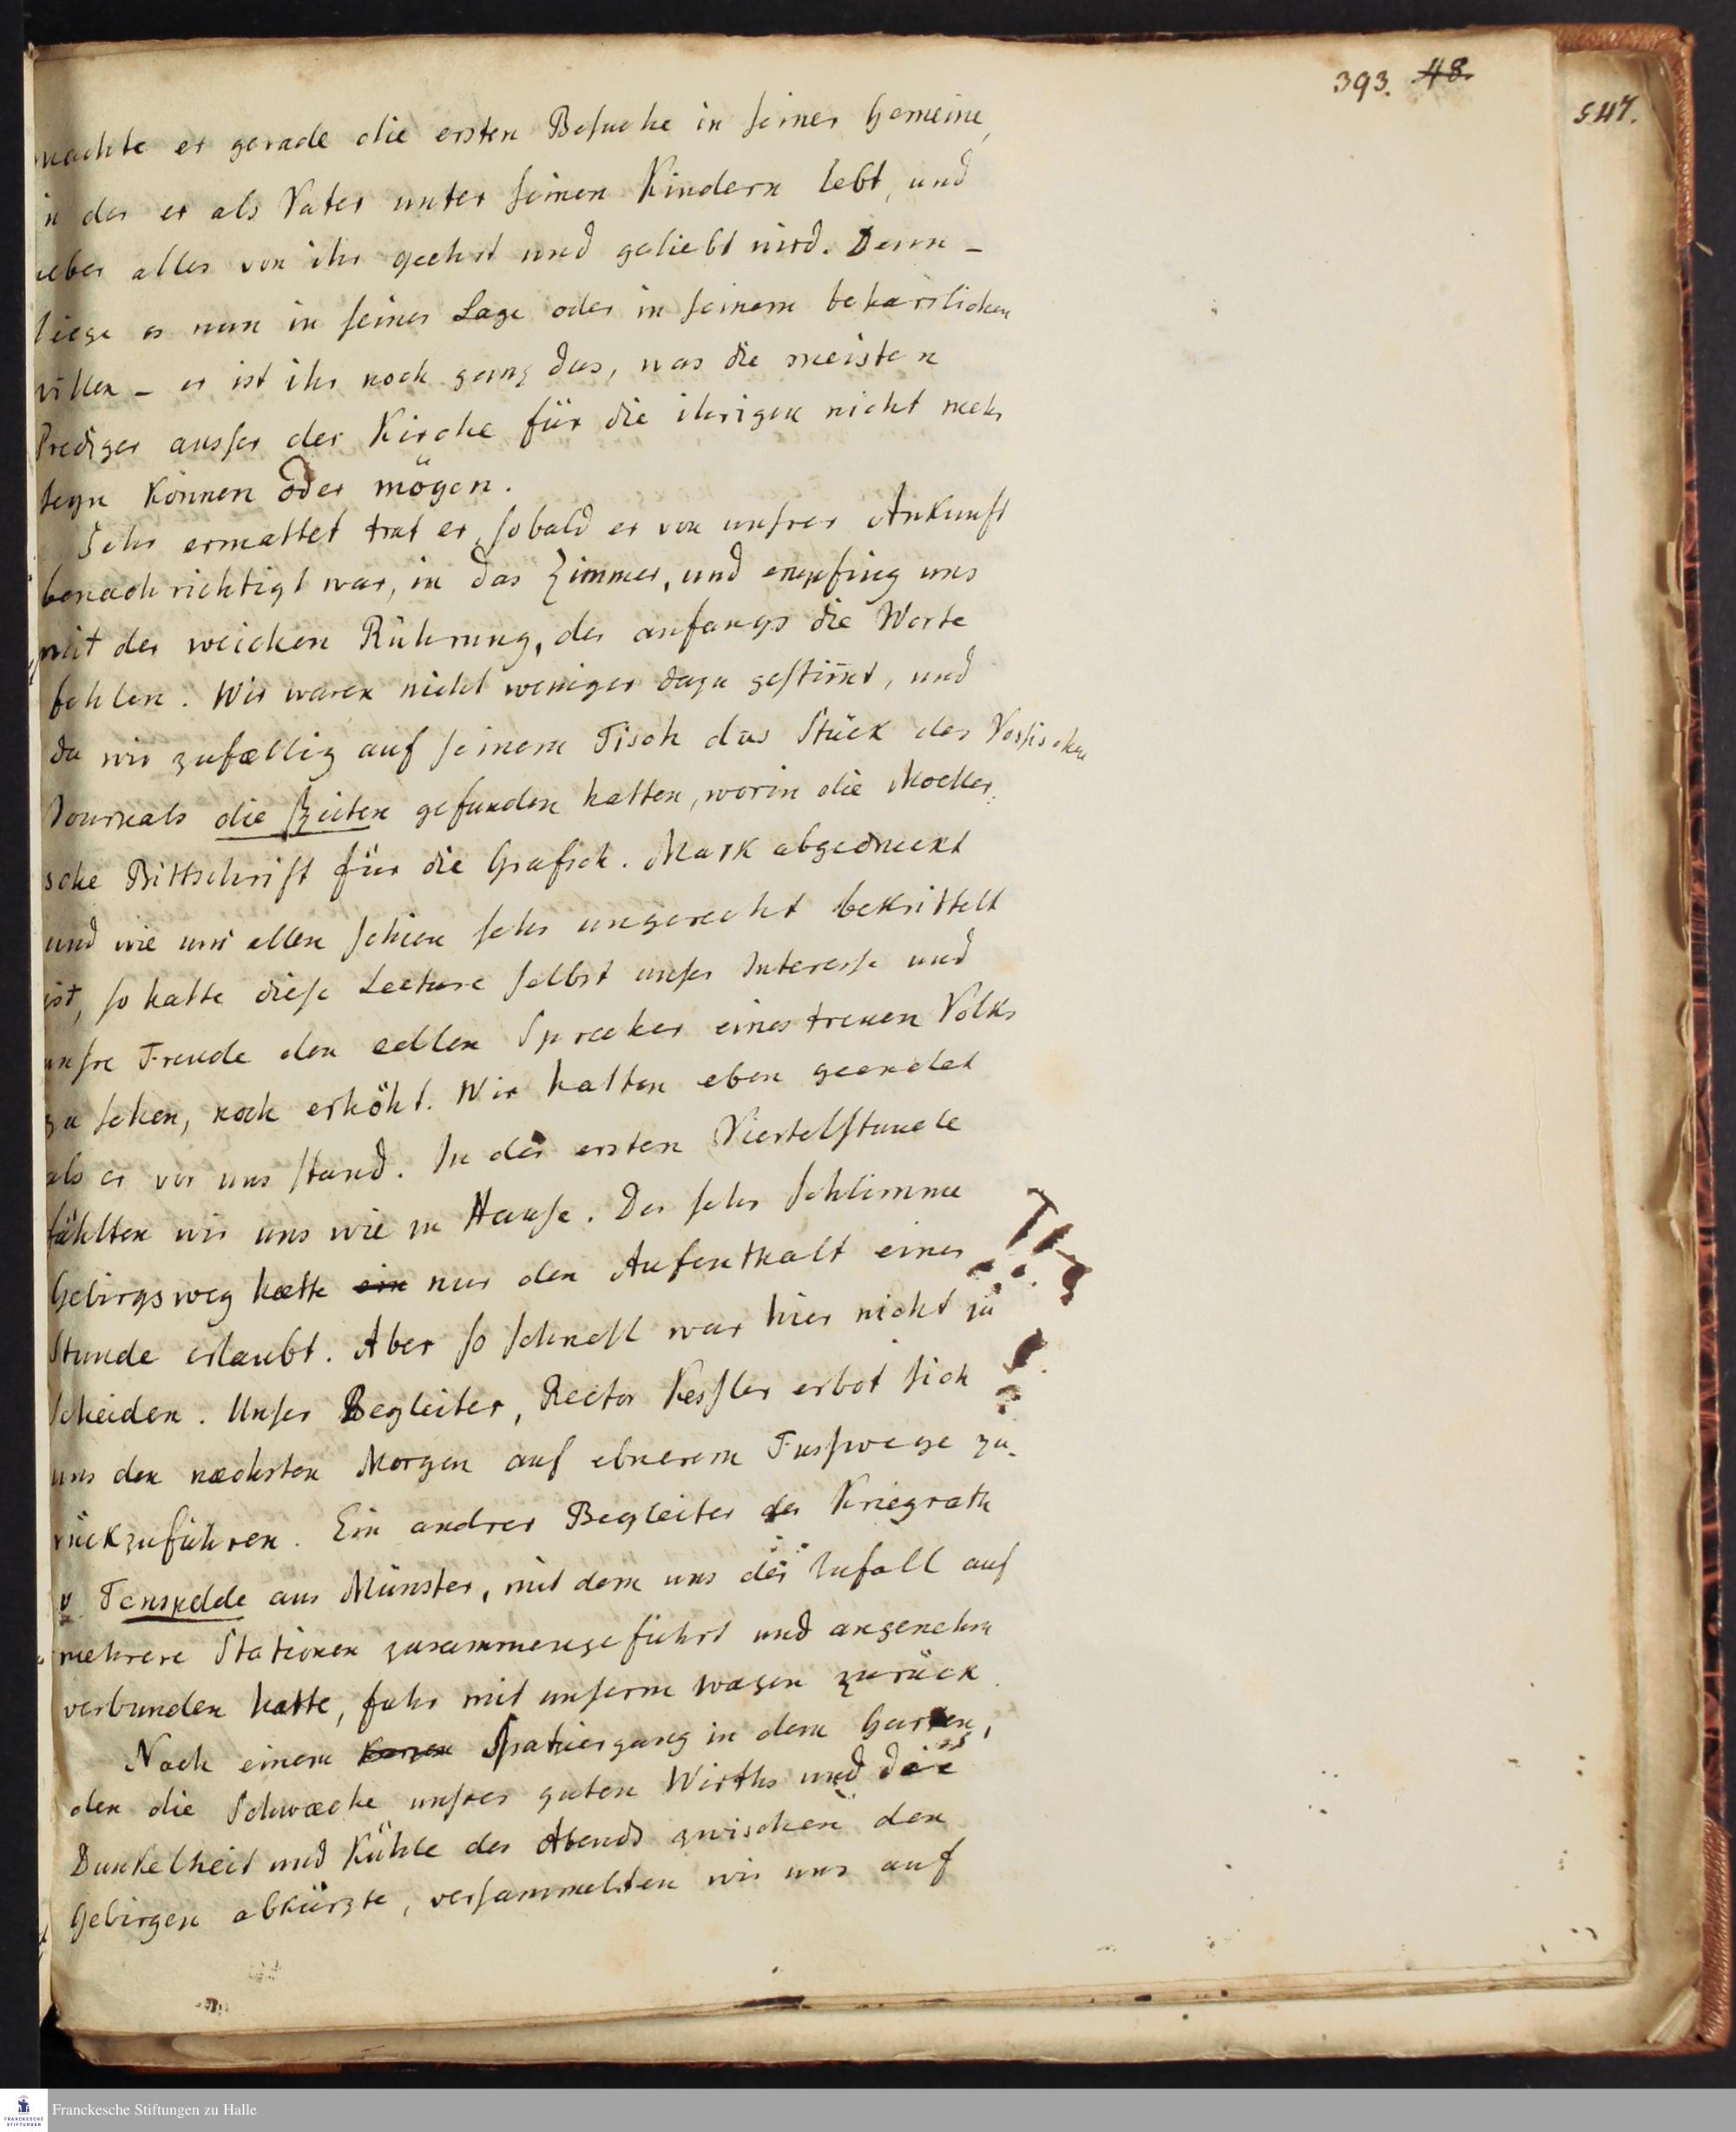 393. 48.
547.
machte er gerade die ersten Besuche in seiner Gemeine,
in der er als Vater unter seinen Kindern lebt, und
ueber alles von ihr geehrt und geliebt wird. Denn –
liege es nun in seiner Lage oder in seinem beharrlichen
willen – er ist ihr noch ganz das, was die meisten
Prediger ausser der Kirche für die ihrigen nicht mehr
seyn können oder mögen.
Sehr ermattet trat er, sobald er von unsrer Ankunft
benachrichtigt war, in das Zimmer, und empfing uns
mit der weichen Rührung, der anfangs die Worte
fehlen. Wir waren nicht weniger dazu gestim̄t, und
da wir zufællig auf seinem Tisch das Stück des Vossischen
Journals die Zeiten gefunden hatten, worin die Moeller-
sche Bittschrift für die Grafsch. Mark abgedruckt
und wie uns allen schien sehr ungerecht bekrittelt
ist, so hatte diese Lecture selbst unser Interesse und
unsre Freude den edlen Sprecher eines treuen Volks
zu sehen, noch erhöht. Wir hatten eben geendet
als er vor uns stand. In der ersten Viertelstunde
fühlten wir uns wie zu Hause. Der sehr schlimme
Gebirgsweg hætte ein nur den Aufenthalt einer
Stunde erlaubt. Aber so schnell war hier nicht zu
scheiden. Unser Begleiter, Rector Kessler erbot sich
uns den næchsten Morgen auf ebnerem Fusswege zu-
rückzuführen. Ein andrer Begleiter der Kriegrath
v Tenspelde aus Münster, mit dem uns der Zufall auf
mehrere Stationen zusammengeführt und angenehm
verbunden hatte, fuhr mit unserm wagen zurück.
Nach einem kurzen Spatziergang in dem Garten,
den die Schwæche unsres guten Wirths und die
Dunkelheit und Kühle des Abends zwischen den
Gebirgen abkürzte, versammelten wir uns auf
Franckesche Stiftungen zu Halle
FRANCKESCHE
STIFTUNGEN